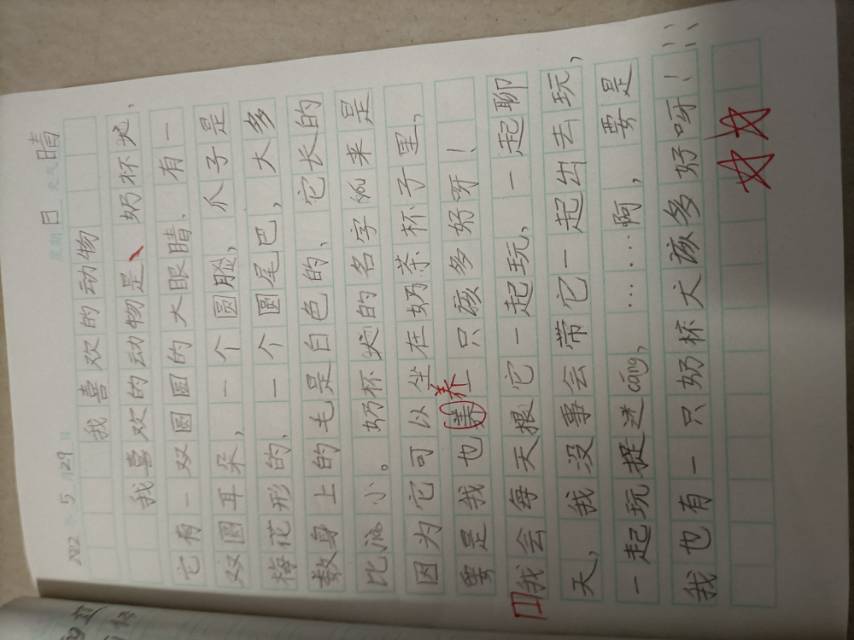 202 年 5 月 29 日 星期 日 天气 晴
我喜欢的动物
我喜欢的动物是、奶杯犬，
它有一双圆圆的大眼睛、有一
双圆耳朵，一个圆脸，爪子是
梅花形的、一个圆尾巴，大多
数身上的毛是白色的、它长的
比 小。奶杯犬的名字 来是
因为它可以坐在奶茶杯子里，
养
要是我也 一只该多好呀！
我会每天跟它一起玩、一起聊
天，我没事会带它一起出去玩，
一起玩捉迷cáng，……啊，要是
我也有一只奶杯犬该多好呀！